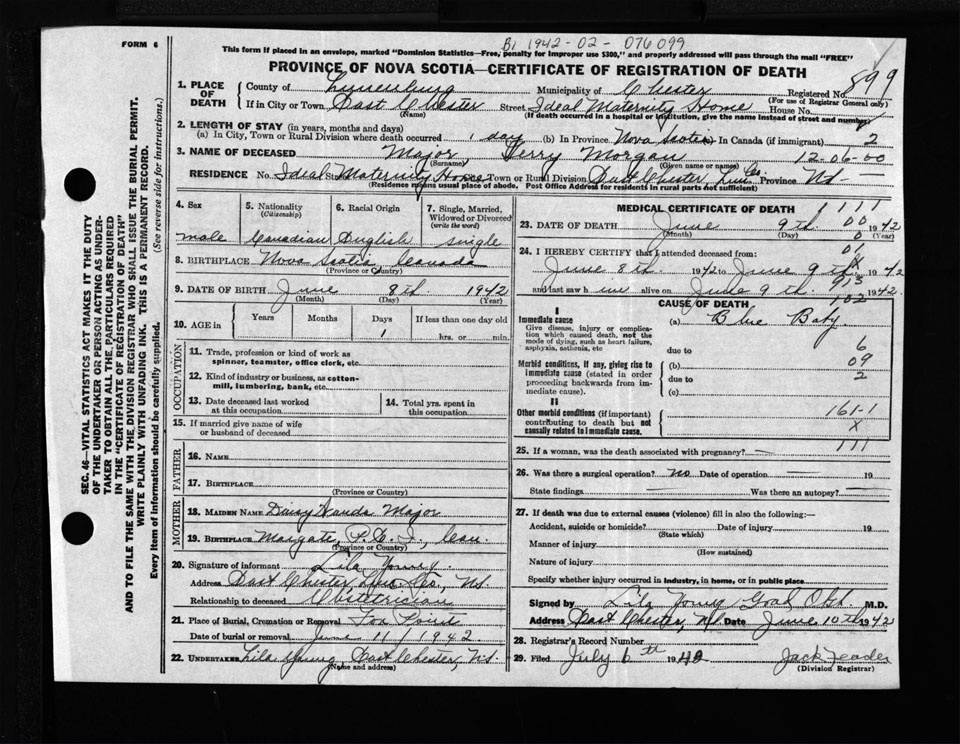 FORM 6
B1 1942-02-076099
This form if placed in an envelope, marked "Dominion Statistics—Free, penalty for improper use $300," and properly addressed will pass through the mail "FREE"
PROVINCE OF NOVA SCOTIA—CERTIFICATE OF REGISTRATION OF DEATH
899
1. PLACE OF DEATH County of Lunenburg Municipality of Chester Registered No.
(For use of Registrar General only)
If in City or Town East Chester Street Ideal Maternity Home House No.
(Name) (If death occurred in hospital or institution, give the name instead of street and number)
2. LENGTH OF STAY (in years, months and days)
(a) In City, Town or Rural Division where death occurred 1 day (b) In Province Nova Scotia In Canada (if immigrant) 2
3. NAME OF DECEASED Major Terry Morgan 12-06-00
(Surname) (Given name or names)
RESIDENCE No. Ideal Street Maternity Home City, Town or Rural Division East Chester, Lun. Co. Province NS.
(Residence means usual place of abode. Post Office Address for residents in rural parts not sufficient)
4. Sex male
5. Nationality (Citizenship) Canadian
6. Racial Origin English
7. Single, Married, Widowed or Divorced (write the word) single
8. BIRTHPLACE Nova Scotia, Canada
(Province or Country)
9. DATE OF BIRTH June 8th. 1942
(Month) (Day) (Year)
10. AGE in Years Months Days If less than one day old
1 hrs. or min.
OCCUPATION
11. Trade, profession or kind of work as spinner, teamster, office clerk, etc.
12. Kind of industry or business, as cotton-mill, lumbering, bank, etc.
13. Date deceased last worked at this occupation
14. Total yrs. spent in this occupation
15. If married give name of wife or husband of deceased
FATHER
16. NAME
17. BIRTHPLACE
(Province or Country)
MOTHER
18. MAIDEN NAME Daisy Wanda Major
19. BIRTHPLACE Margate, P.E.I., Can.
(Province or Country)
20. Signature of informant Lila Young.
Address East Chester, Lun. Co., NS.
Relationship to deceased Obstetrician
21. Place of Burial, Cremation or Removal Fox Point
Date of burial or removal June 11/1942
22. UNDERTAKER Lila Young, East Chester, NS.
(Name and address)
MEDICAL CERTIFICATE OF DEATH
1111
23. DATE OF DEATH June 9th. 00 1942
(Month) (Day) 0 (Year)
24. I HEREBY CERTIFY that I attended deceased from: 01
June 8th. 1942 to June 9th. 1942
913
and last saw h im alive on June 9th. 1942.
102
CAUSE OF DEATH
I
Immediate cause (a) Blue Baby.
Give disease, injury or complication which caused death, not the mode of dying, such as heart failure, asphyxia, asthenia, etc
due to 6
Morbid conditions, if any, giving rise to immediate cause (stated in order proceeding backwards from immediate cause).
(b) 09
due to 2
(c)
II
Other morbid conditions (if important) contributing to death but not causally related to immediate cause.
161-1
X
111
25. If a woman, was the death associated with pregnancy? —
26. Was there a surgical operation? no Date of operation — 19
State findings — Was there an autopsy? —
27. If death was due to external causes (violence) fill in also the following:—
Accident, suicide or homicide? Date of injury 19
(State which)
Manner of injury
(How sustained)
Nature of injury
Specify whether injury occurred in industry, in home, or in public place
Signed by Lila Young Grad Obst. M.D.
Address East Chester, NS Date June 10th 1942
28. Registrar's Record Number
29. Filed July 6th 1942 Jack
(Division Registrar)
SEC. 46—VITAL STATISTICS ACT MAKES IT THE DUTY
OF THE UNDERTAKER OR PERSON ACTING AS UNDER-
TAKER TO OBTAIN ALL THE PARTICULARS REQUIRED
IN THE "CERTIFICATE OF REGISTRATION OF DEATH"
AND TO FILE THE SAME WITH THE DIVISION REGISTRAR WHO SHALL ISSUE THE BURIAL PERMIT.
WRITE PLAINLY WITH UNFADING INK. THIS IS A PERMANENT RECORD.
Every item of information should be carefully supplied. (See reverse side for instructions.)